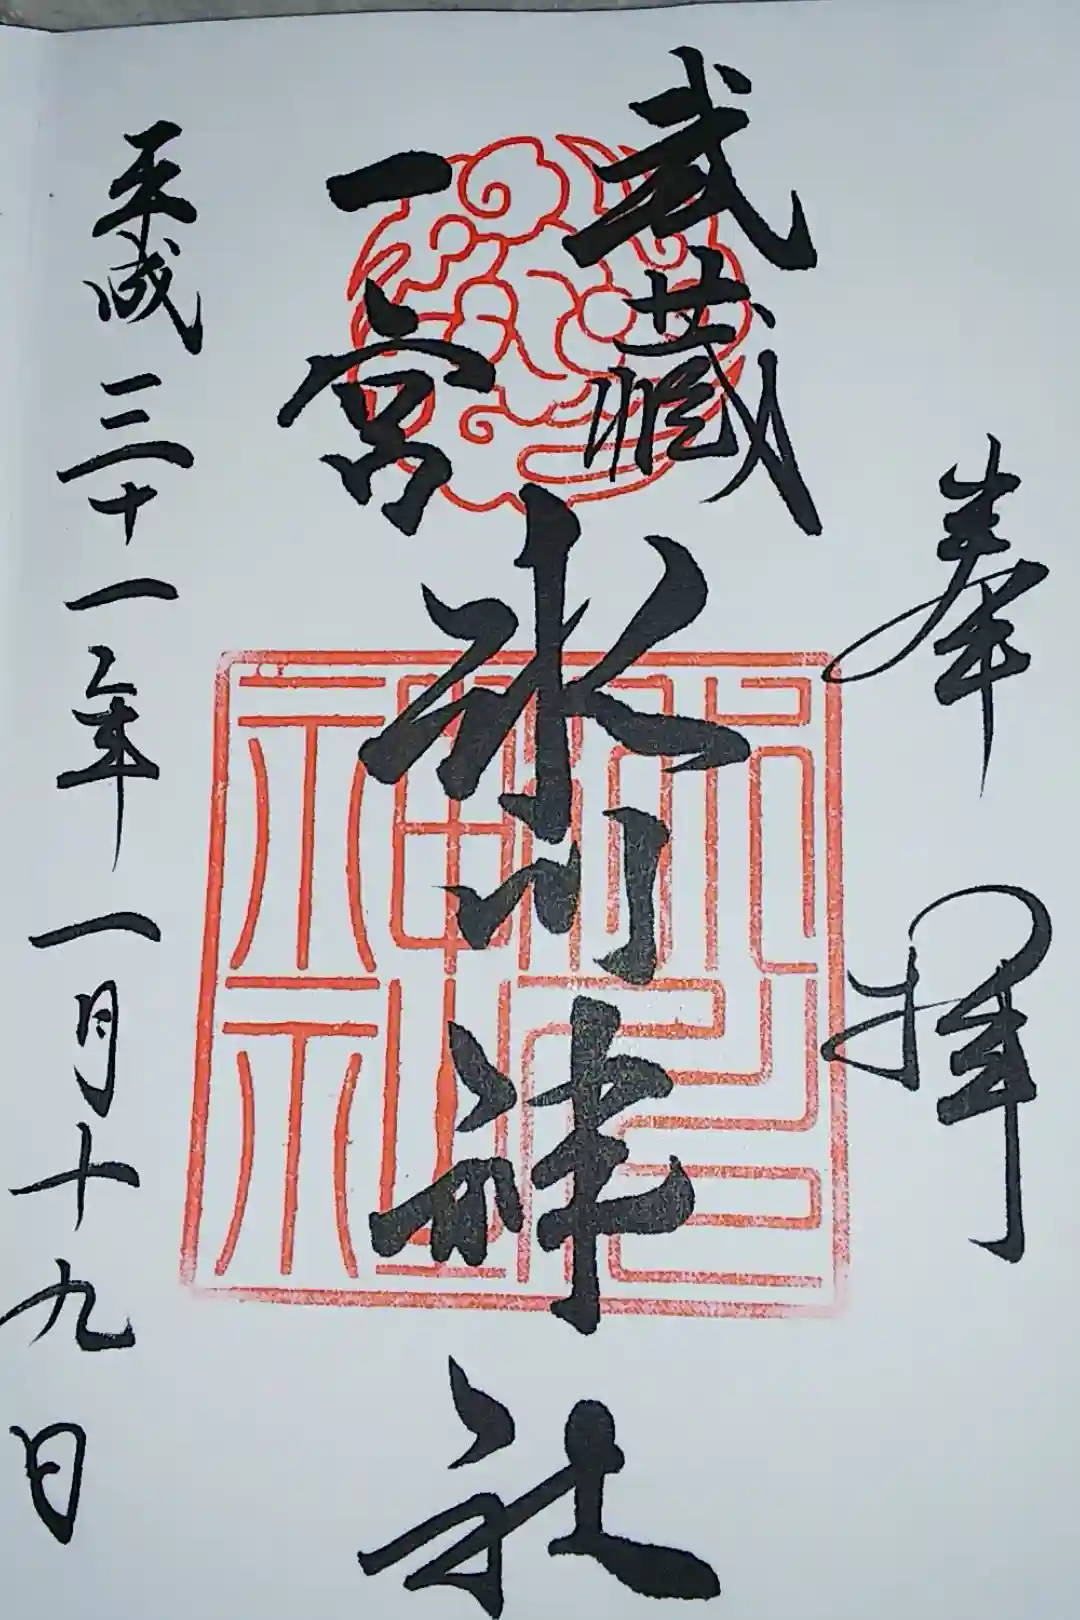 奉拝
武蔵
一宮
氷川神社
平成三十一年一月十九日
氷川神社